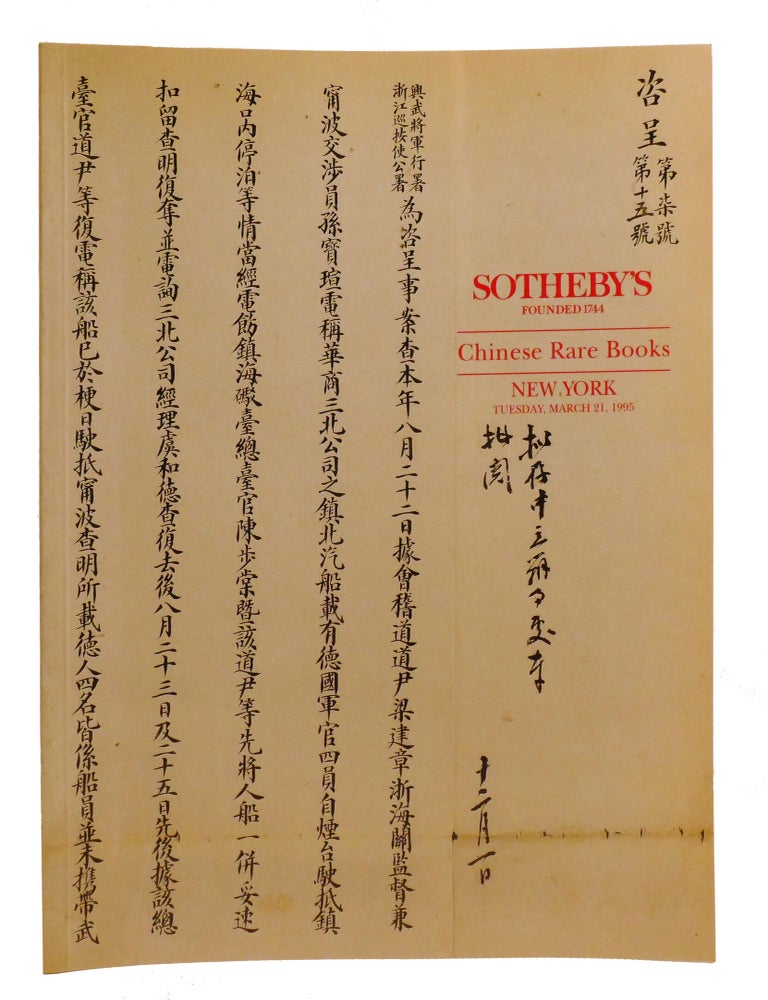 咨呈
第柒號
第十五號
SOTHEBY'S
FOUNDED 1744
Chinese Rare Books
NEW YORK
TUESDAY, MARCH 21, 1995
十二月一日
興武將軍行署
浙江巡按使公署
為咨呈事案查本年八月二十二日據會稽道道尹梁建章浙海關監督兼
甯波交涉員孫寶瑄電稱華商三北公司之鎮北汽船載有德國軍官四員自煙台駛抵鎮
海口內停泊等情當經電飭鎮海礮臺總臺官陳步棠暨該道尹等先將人船一併妥速
扣留查明復奪並電詢三北公司經理虞和德查復去後八月二十三日及二十五日先後據該總
臺官道尹等復電稱該船已於梗日駛抵甯波查明所載德人四名皆係船員並未携帶武